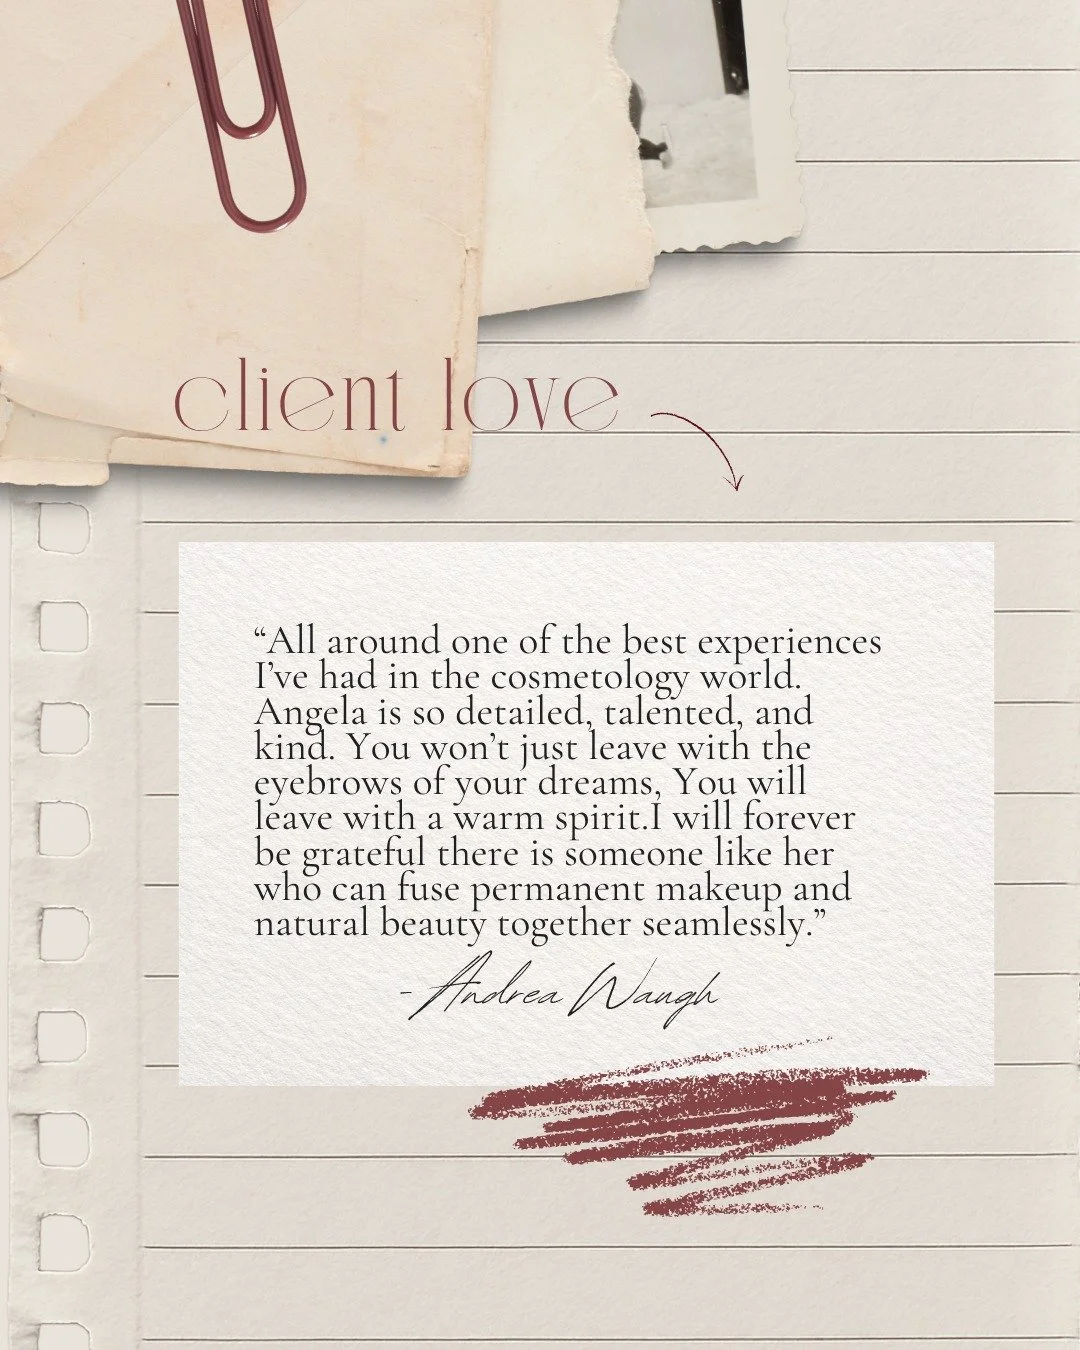 client love
“All around one of the best experiences
I’ve had in the cosmetology world.
Angela is so detailed, talented, and
kind. You won’t just leave with the
eyebrows of your dreams, You will
leave with a warm spirit.I will forever
be grateful there is someone like her
who can fuse permanent makeup and
natural beauty together seamlessly.”
- Andrea Waugh